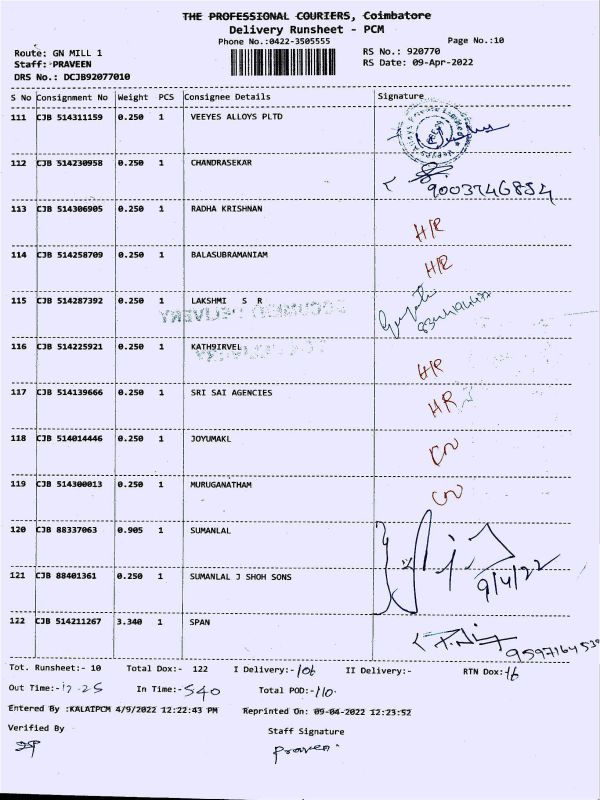 THE PROFESSIONAL COURIERS, Coimbatore
Delivery Runsheet - PCM
Phone No.:0422-3505555
Page No.:10
Route: GN MILL 1
RS No.: 920770
Staff: PRAVEEN
RS Date: 09-Apr-2022
DRS No.: DCJB92077010
S No Consignment No Weight PCS Consignee Details Signature
111 CJB 514311159 0.250 1 VEEYES ALLOYS PLTD
112 CJB 514230958 0.250 1 CHANDRASEKAR
9003746854
113 CJB 514306905 0.250 1 RADHA KRISHNAN H/R
114 CJB 514258709 0.250 1 BALASUBRAMANIAM H/R
115 CJB 514287392 0.250 1 LAKSHMI S R
116 CJB 514225921 0.250 1 KATH9IRVEL H/R
117 CJB 514139666 0.250 1 SRI SAI AGENCIES HR
118 CJB 514014446 0.250 1 JOYUMAKL
119 CJB 514300013 0.250 1 MURUGANATHAM
120 CJB 88337063 0.905 1 SUMANLAL
121 CJB 88401361 0.250 1 SUMANLAL J SHOH SONS 9/4/22
122 CJB 514211267 3.340 1 SPAN
Tot. Runsheet:- 10 Total Dox:- 122 I Delivery:- 106 II Delivery:- RTN Dox: 16
Out Time:- 12-25 In Time:- 540 Total POD:- 110
Entered By :KALAIPCM 4/9/2022 12:22:43 PM Reprinted On: 09-04-2022 12:23:52
Verified By Staff Signature
Praveen